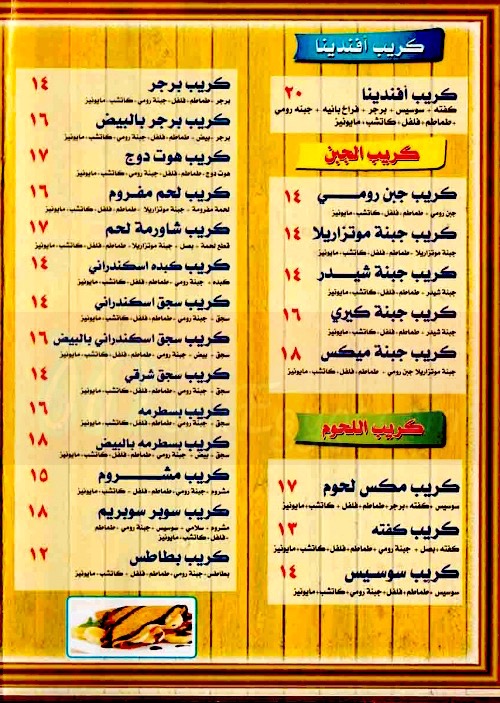 كريب أفندينا
كريب أفندينا ٢٠
كفته + سوسيس + برجر + فراخ بانيه + جبنه رومي
+طماطم+فلفل+كاتشب+مايونيز
كريب الجبن
كريب جبن رومـــي ١٤
جبن رومي + طماطم+فلفل+كاتشب+مايونيز
كريب جبنة موتزاريلا ١٤
جبنة موتزاريلا +طماطم+فلفل+كاتشب+مايونيز
كريب جبنة شيـدر ١٤
جبنة شيدر + طماطم+فلفل+كاتشب+مايونيز
كريب جبنة كيري ١٦
جبنة شيدر + طماطم+فلفل+كاتشب+مايونيز
كريب جبنة ميكس ١٨
جبنة موتزاريلا جبن رومي + طماطم+فلفل+كاتشب+مايونيز
كريب اللحوم
كريب مكس لحوم ١٧
سوسيس+كفته+برجر+طماطم+فلفل+كاتشب+مايونيز
كريب كفته ١٣
كفته+بصل + جبنة رومي +طماطم+فلفل+كاتشب+مايونيز
كريب سوسيس ١٤
سوسيس +طماطم+فلفل+جبنة رومي+كاتشب+مايونيز
كريب برجر ١٤
برجر +طماطم+فلفل+جبنة رومي+كاتشب+مايونيز
كريب برجر بالبيض ١٦
برجر+بيض + طماطم+فلفل+جبنة رومي+كاتشب+مايونيز
كريب هوت دوج ١٧
هوت دوج+طماطم+فلفل+جبنة رومي+كاتشب+مايونيز
كريب لحم مفروم ١٦
لحمة مفرومة + جبنة موتزاريلا +طماطم+فلفل+كاتشب+مايونيز
كريب شاورمة لحم ١٧
قطع لحمة + بصل + جبنة موتزاريلا +طماطم+فلفل+كاتشب+مايونيز
كريب كبده اسكندراني ١٤
كبده + جبنة رومي +طماطم+فلفل+كاتشب+مايونيز
كريب سجق اسكندراني ١٤
سجق + جبنة رومي +طماطم+فلفل+كاتشب+مايونيز
كريب سجق اسكندراني بالبيض ١٦
سجق + بيض + جبنة رومي +طماطم+فلفل+كاتشب+مايونيز
كريب سجق شرقي ١٤
سجق + جبنة رومي +طماطم+فلفل+كاتشب+مايونيز
كريب بسطرمه ١٦
سجق + جبنة رومي +طماطم+فلفل+كاتشب+مايونيز
كريب بسطرمه بالبيض ١٨
سجق + بيض + جبنة رومي +طماطم+فلفل+كاتشب+مايونيز
كريب مشـــروم ١٥
مشروم +جبنة رومي+طماطم+فلفل+كاتشب+مايونيز
كريب سوبر سوبريم ١٨
مشروم + سلامي + سوسيس +جبنة رومي+طماطم
+فلفل+كاتشب+مايونيز
كريب بطاطس ١٢
بطاطس+جبنة رومي+طماطم+فلفل+كاتشب+مايونيز